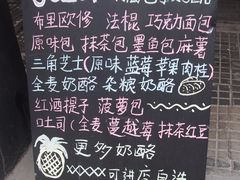 布里欧修 法棍 巧克力面包
原味包 抹茶包 墨鱼包 麻薯
三角芝士(原味 蓝莓 苹果肉桂)
全麦奶酪 杂粮奶酪
红酒提子 菠萝包
吐司(全麦 蔓越莓 抹茶红豆
更多奶酪
可进店自选